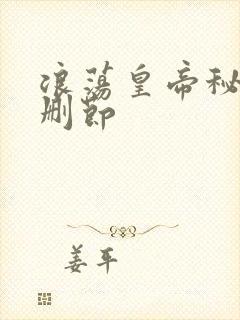 浪荡皇帝秘
删节
姜平